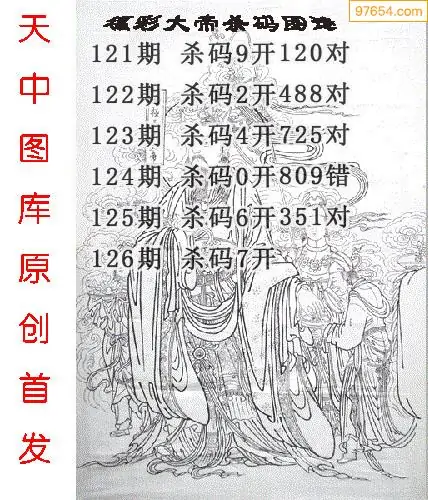 97654.com
福彩大帝杀码图迷
121期 杀码9开120对
122期 杀码2开488对
123期 杀码4开725对
124期 杀码0开809错
125期 杀码6开351对
126期 杀码7开
天中图库原创首发